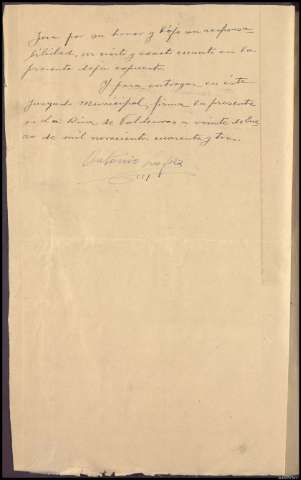 Jura por su honor y bajo su responsa-
bilidad, ser cierto y exacto cuanto en la
presente deja expuesto.
Y para entregar en este
Juzgado Municipal, firma la presente
en La Riva de Valdeiras a veinte de
de mil novecientos cuarenta y tres.
Antonio